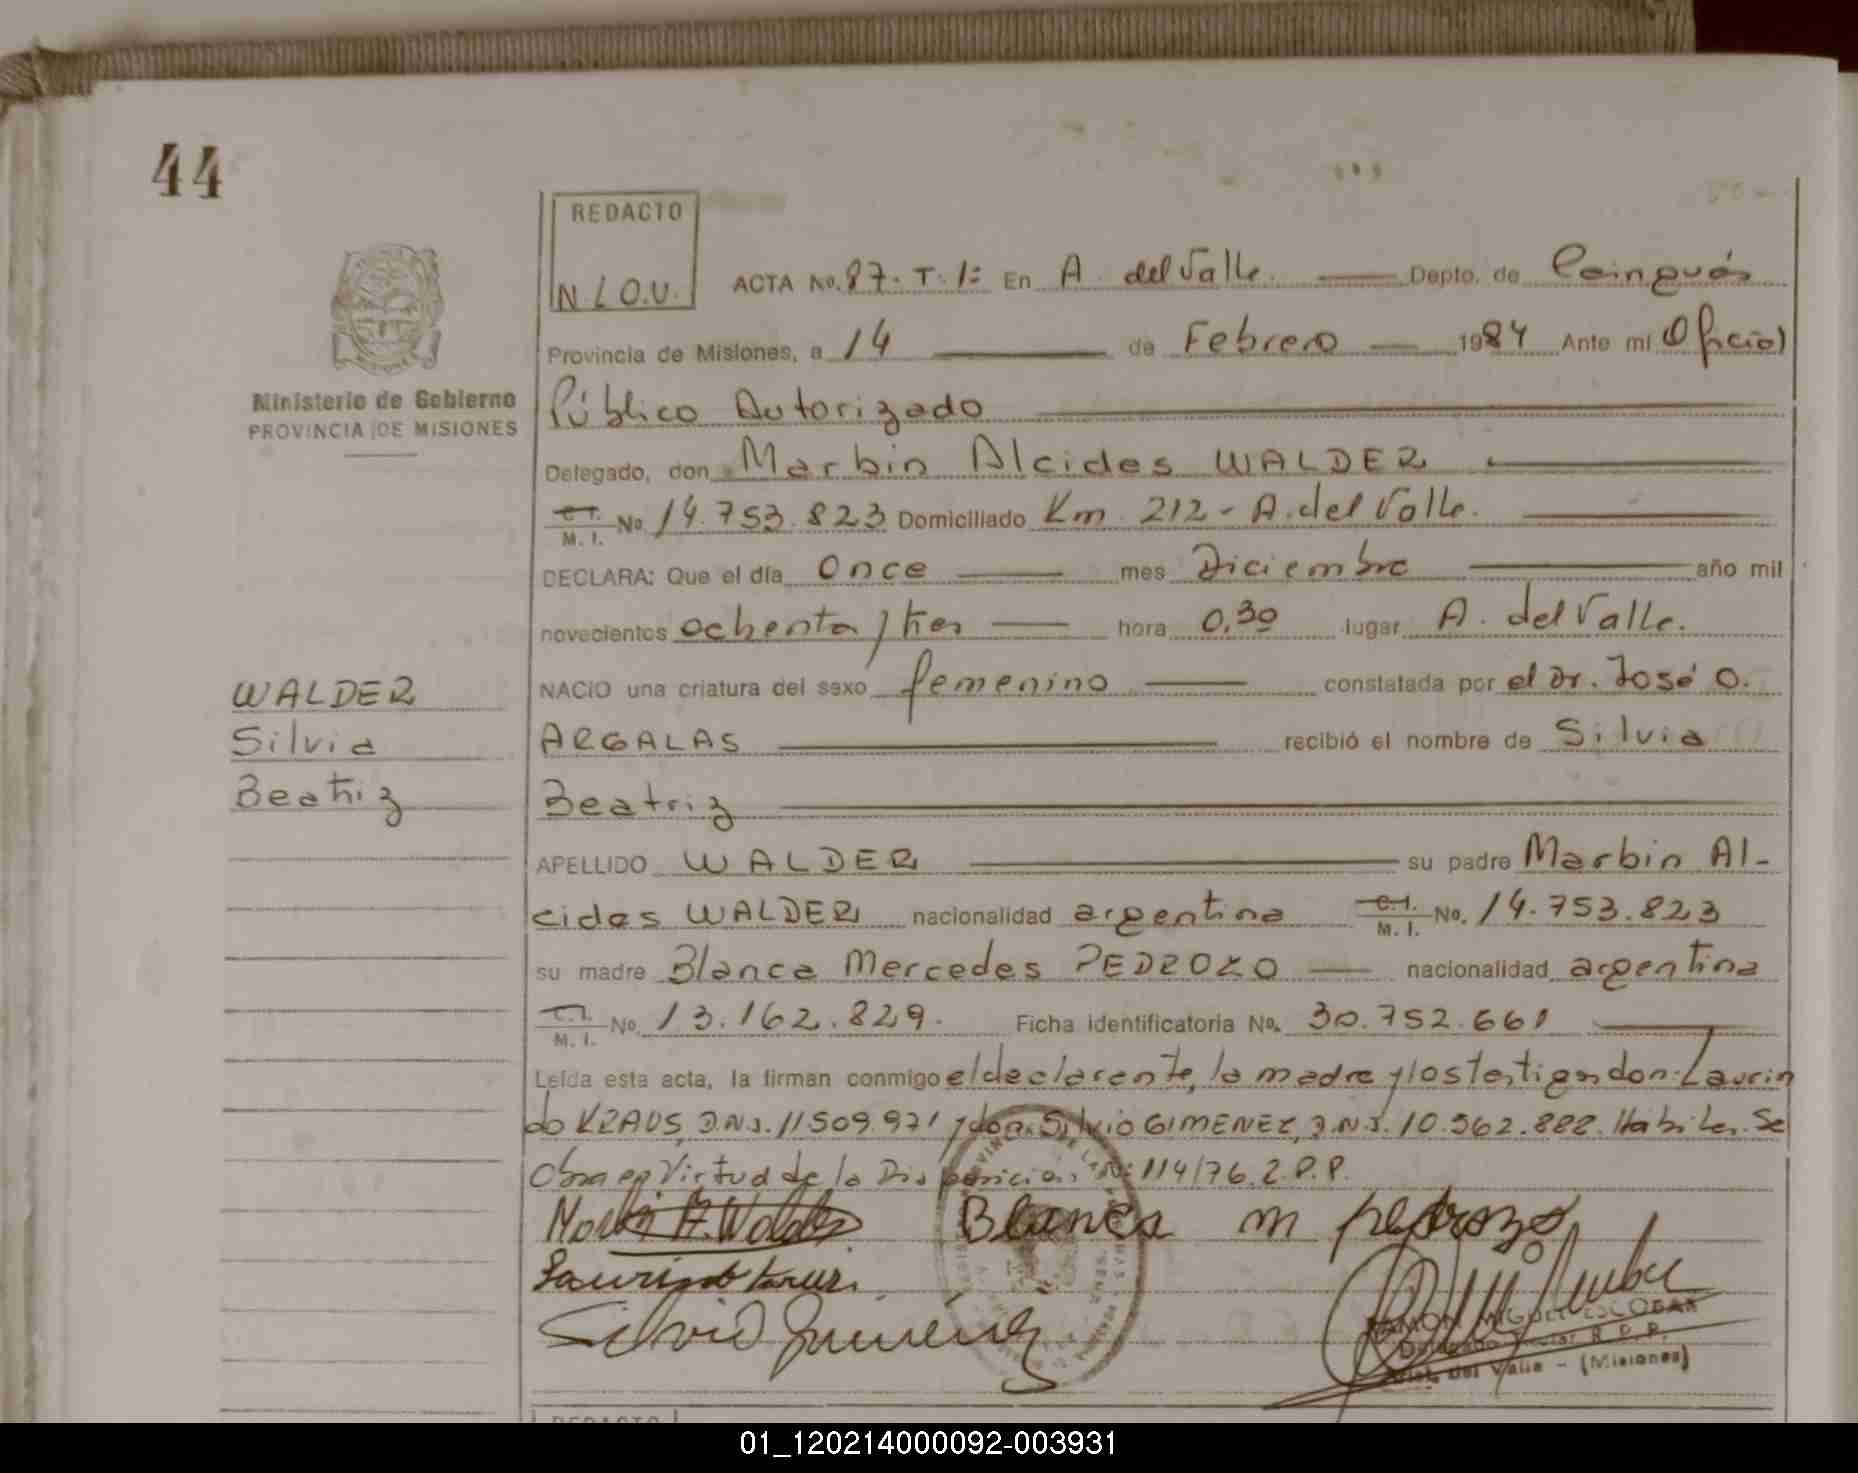 44
REDACTO
N.L.O.V.
ACTA No. 87. T. 1º En A. del Valle. Depto. de Cainguás
Provincia de Misiones, a 14 de Febrero 1984 Ante mí Oficial
Ministerio de Gobierno
PROVINCIA DE MISIONES
Público Autorizado
Delegado, don Marbin Alcides WALDER
C.I. M.I. No. 14.753.823 Domiciliado Km 212 - A. del Valle.
DECLARA: Que el día Once mes Diciembre año mil
novecientos ochenta y tres hora 0,30 lugar A. del Valle.
NACIO una criatura del sexo femenino constatada por el Dr. José O.
ARGALAS recibió el nombre de Silvia
Beatriz
WALDER
Silvia
Beatriz
APELLIDO WALDER su padre Marbin Al-
cides WALDER nacionalidad argentina C.I. M.I. No. 14.753.823
su madre Blanca Mercedes PEDROZO nacionalidad argentina
C.I. M.I. No. 13.162.829. Ficha identificatoria No. 30.752.661
Leída esta acta, la firman conmigo el declarante, la madre y los testigos don: Laurin
do KRAUS, D.N.I. 11.509.971 y don Silvio GIMENEZ, D.N.I. 10.562.888. Habiles. Se
Obra en Virtud de la Disposición Nº 114/76. R.P.P.
Blanca m pedrozo
Silvio Gimenez
RAMON MIGUEL ESCOBAR
Delegado Titular R.P.P.
Arist. Del Valle - (Misiones)
REDACTO
01_120214000092-003931